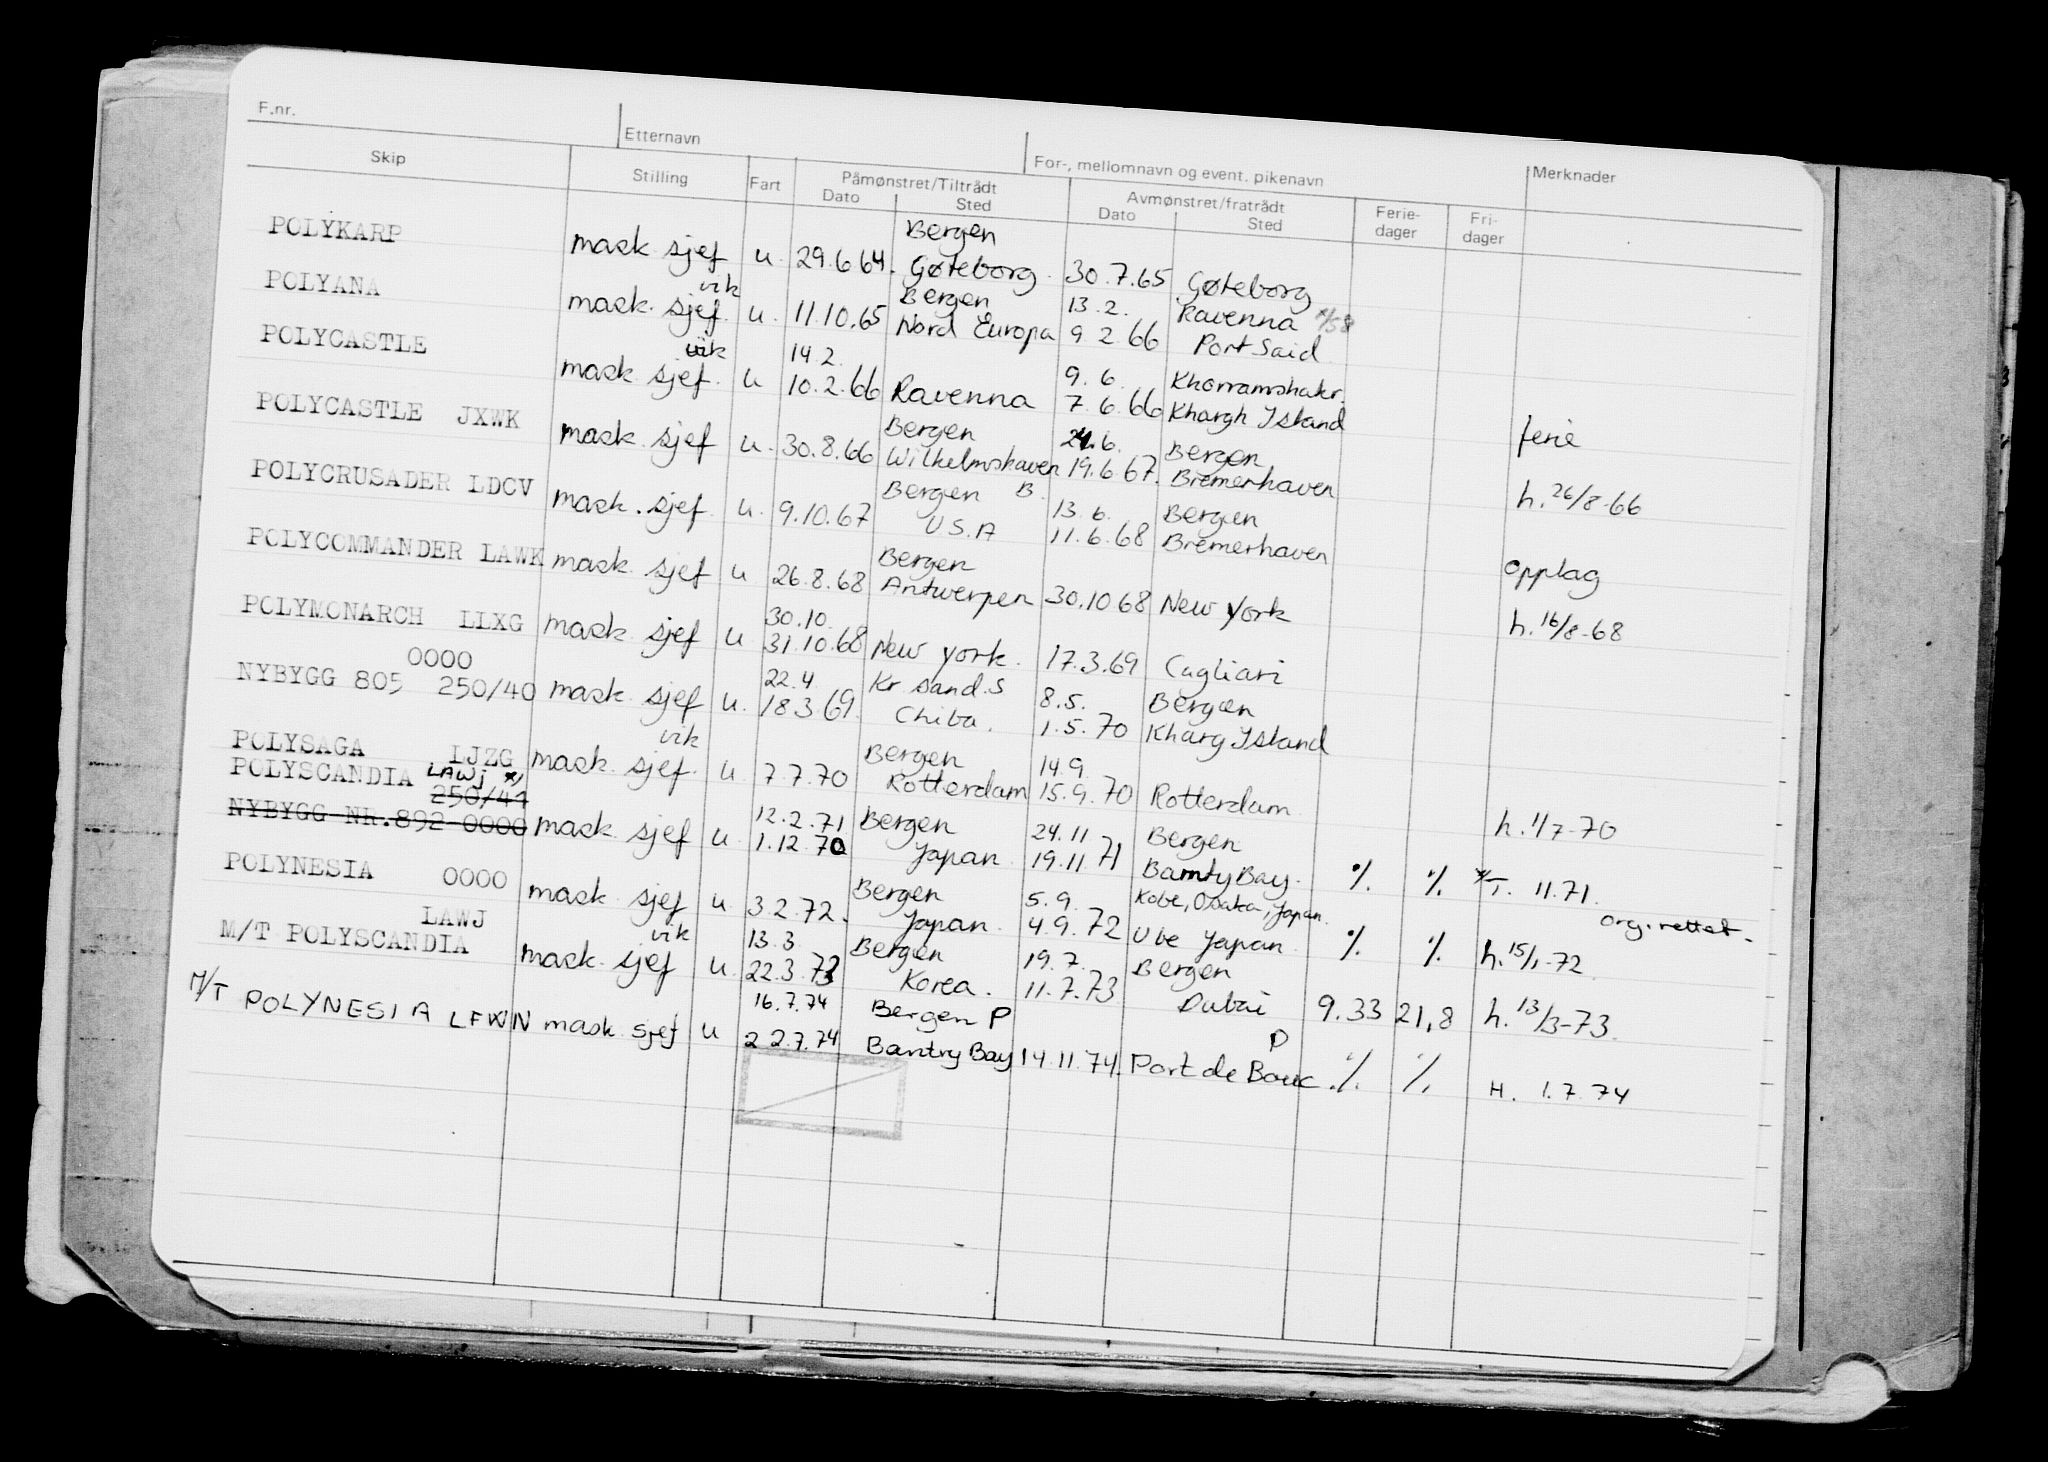 F.nr. Etternavn For-, mellomnavn og event. pikenavn
Skip Stilling Fart Påmønstret/Tiltrådt Avmønstret/fratrådt Ferie- Fri- Merknader
Dato Sted Dato Sted dager dager
POLYKARP Bergen
mask sjef u. 29.6 64. Gøteborg. 30.7.65 Gøteborg
POLYANA vik Bergen 13.2. Ravenna
mask. sjef. u. 11.10.65 Nord Europa 9 2 66 Port Said
POLYCASTLE vik 14.2. 9.6. Khorramshahr.
mask sjef. u 10.2.66 Ravenna 7.6.66 Khargh Island ferie
POLYCASTLE JXWK Bergen 24.6. Bergen
mask sjef u. 30.8.66 Wilhelmshaven 19.6.67. Bremerhaven h. 26/8-66
POLYCRUSADER LDCV Bergen B. 13.6. Bergen
mask. sjef. u. 9.10.67 U.S.A 11.6.68 Bremerhaven opplag
POLYCOMMANDER LAWK Bergen
mask. sjef u 26.8.68 Antwerpen 30.10 68 New York h. 16/8-68
POLYMONARCH LLXG 30.10.
mask. sjef u 31.10.68 New York. 17.3.69 Cagliari
0000 22.4 Kr sand.S 8.5. Bergen
NYBYGG 805 250/40 mask. sjef u. 18 3 69. Chiba. 1.5.70 Kharg Island
POLYSAGA LJZG vik Bergen 14.9.
mask. sjef. u. 7.7.70 Rotterdam 15.9.70 Rotterdam h. 1/7-70
POLYSCANDIA LAWJ x)
250/41 12.2.71 Bergen 24.11 Bergen
NYBYGG NR.892 0000 mask sjef u. 1.12.70 Japan. 19.11 71 Bantry Bay. ٪ ٪ x/T. 11.71.
org. rettet.
POLYNESIA 0000 Bergen 5.9. Kobe, Osaka, Japan.
mask sjef u. 3.2.72. Japan. 4.9.72 Ube Japan. ٪ ٪ h. 15/1-72.
LAWJ vik 13.3. Bergen 19.7. Bergen
M/T POLYSCANDIA mask. sjef u. 22.3.73 Korea. 11.7.73 Dubai 9.33 21,8 h. 13/3-73.
16.7.74 Bergen P P
M/T POLYNESIA LFWN mask sjef u 22.7.74 Bantry Bay 14.11.74. Port de Bouc. ٪ ٪ H. 1.7.74